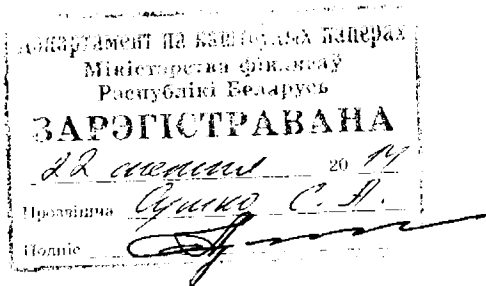 Дэпартамент па каштоўных паперах
Міністэрства фінансаў
Рэспублікі Беларусь
ЗАРЭГІСТРАВАНА
22 20 14
Прозвішча Сушко С. А.
Подпіс